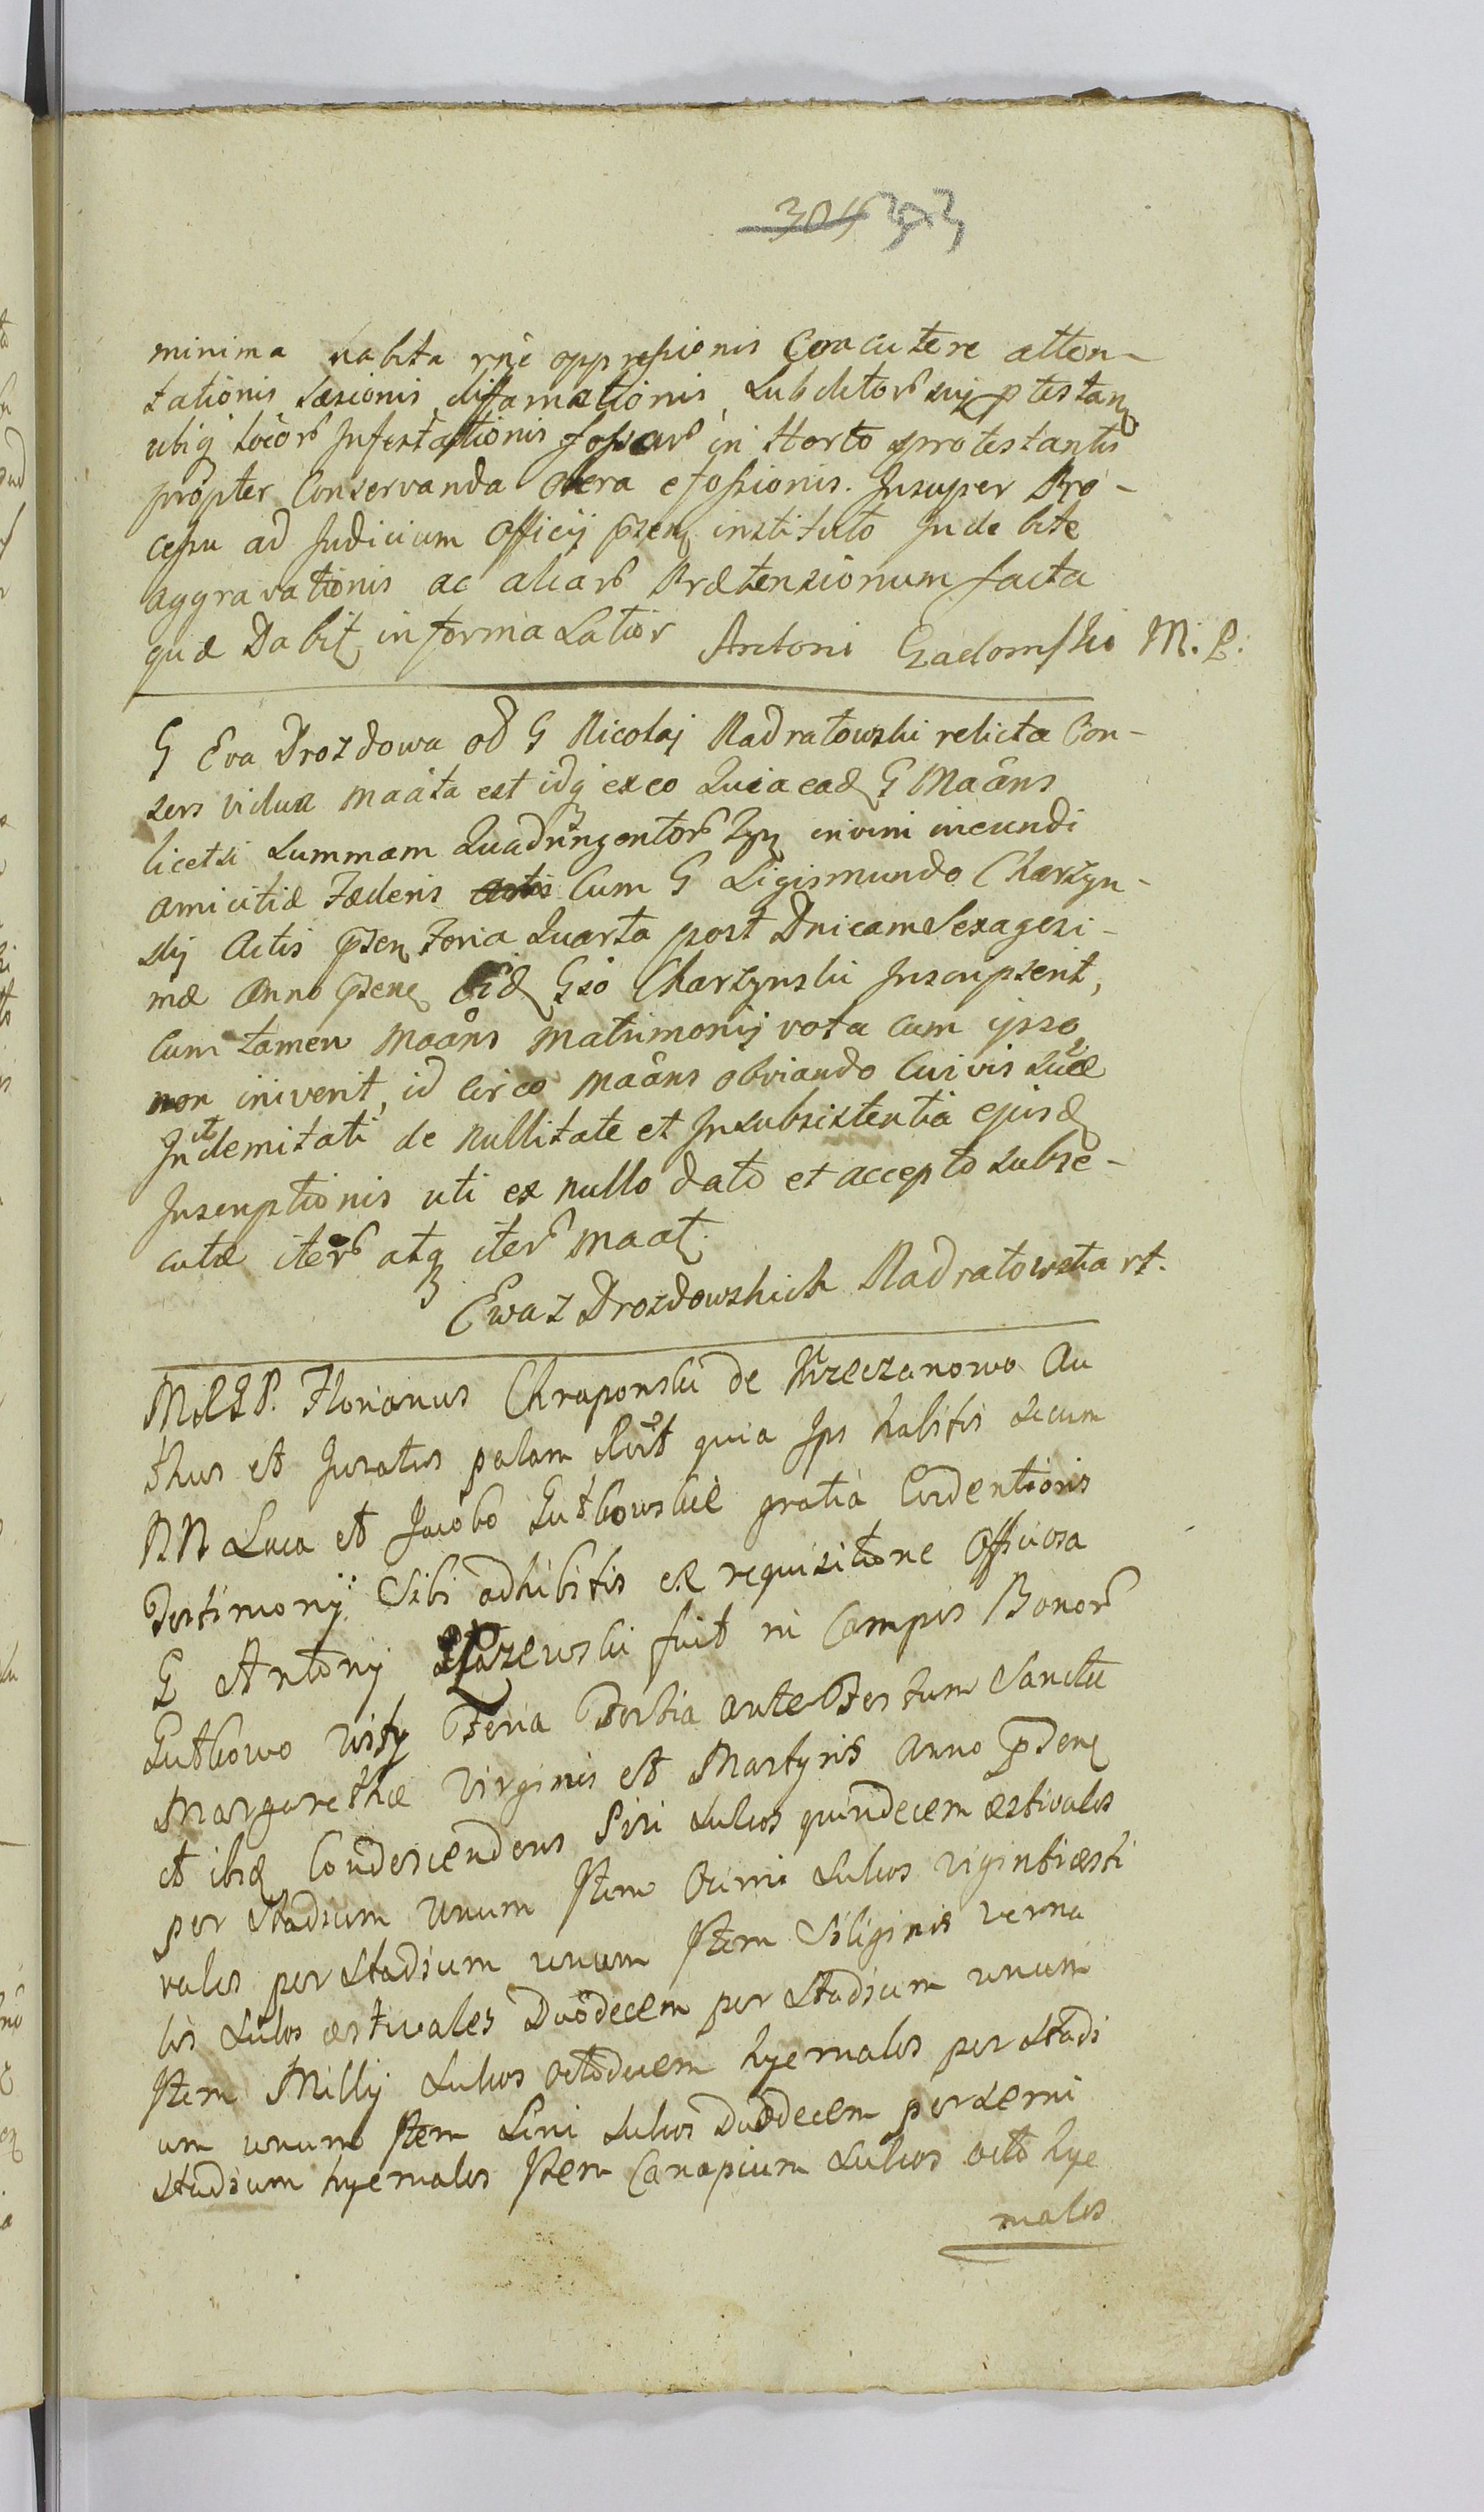 304 303
minima habita rne oppressionis Concutere atten-
tationis Læsionis diffamationis Subditorũ suij ptestanę
ubiq locorũ Infestationis fossarũ in Horto protestantis
propter Conservanda olera efossionis. Insuper Pro-
cessu ad Judicium Officij pseñ instituto Indebite
aggravationis ac aliarũ Prætensionum facta
quæ Dabit in forma Latior Antoni Gadomski M. P.
G Eva Drozdowa od G Nicolaj Radratowski relicta Con-
sers vidua maãta est idq ex eo Quia eadę G Maãns
licet si Summam Quadringentorũ in vim ineundi
amicitiæ Fæderis Cum G Sigismundo Charzyn-
skij Actis pseñ Feria Quarta post Dnicam Sexagesi-
mæ Anno pseñ Eidę Gso Charzynski Inscripserit,
Cum tamen Maãns Matrimonij vota cum ipso
non iniverit, id circo maãns obviando Cuivis suæ
Indemitati de Nullitate et Insubsistentia ejusdę
Inscriptionis uti ex nullo dato et accepto subse-
cutæ iterũ atq iterũ maat.
Ewa z Drozdowskich Radratowska rt.
Florianus Chraponski de Krzeczanowo Au
thus et Juratus palam rłuit quia Ips habitis secum
NN Luca et Jacobo Gutkowskie gratia Evidentioris
Testimonij Sibi adhibitis ex requisitione Officiosa
G Antonij fuit in Campis Bonorũ
Gutkowo Feria Tertia ante Festum Sanctæ
Margarethæ Virginis et Martyris Anno pseñ
et ibię Condescendens Pisi Sulcos quindecem æstivales
per Stadium Unum Item Sulcos viginti æsti
vales per Stadium unum Item Siliginis verna
lis Sulcos æstivales Duodecem per Stadium unum
Item Millij Sulcos octodecem hyemales per Stadi
um unum Item Lini Sulcos Duodecem per semi
Stadium hyemales Item Canapium Sulcos octo hye
males